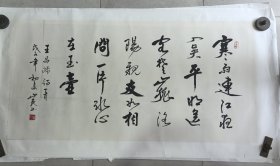 寒雨連江夜
入吴平明送
客楚山孤洛
陽親友如相
問一片冰心
在玉壺
王昌龄詩
年